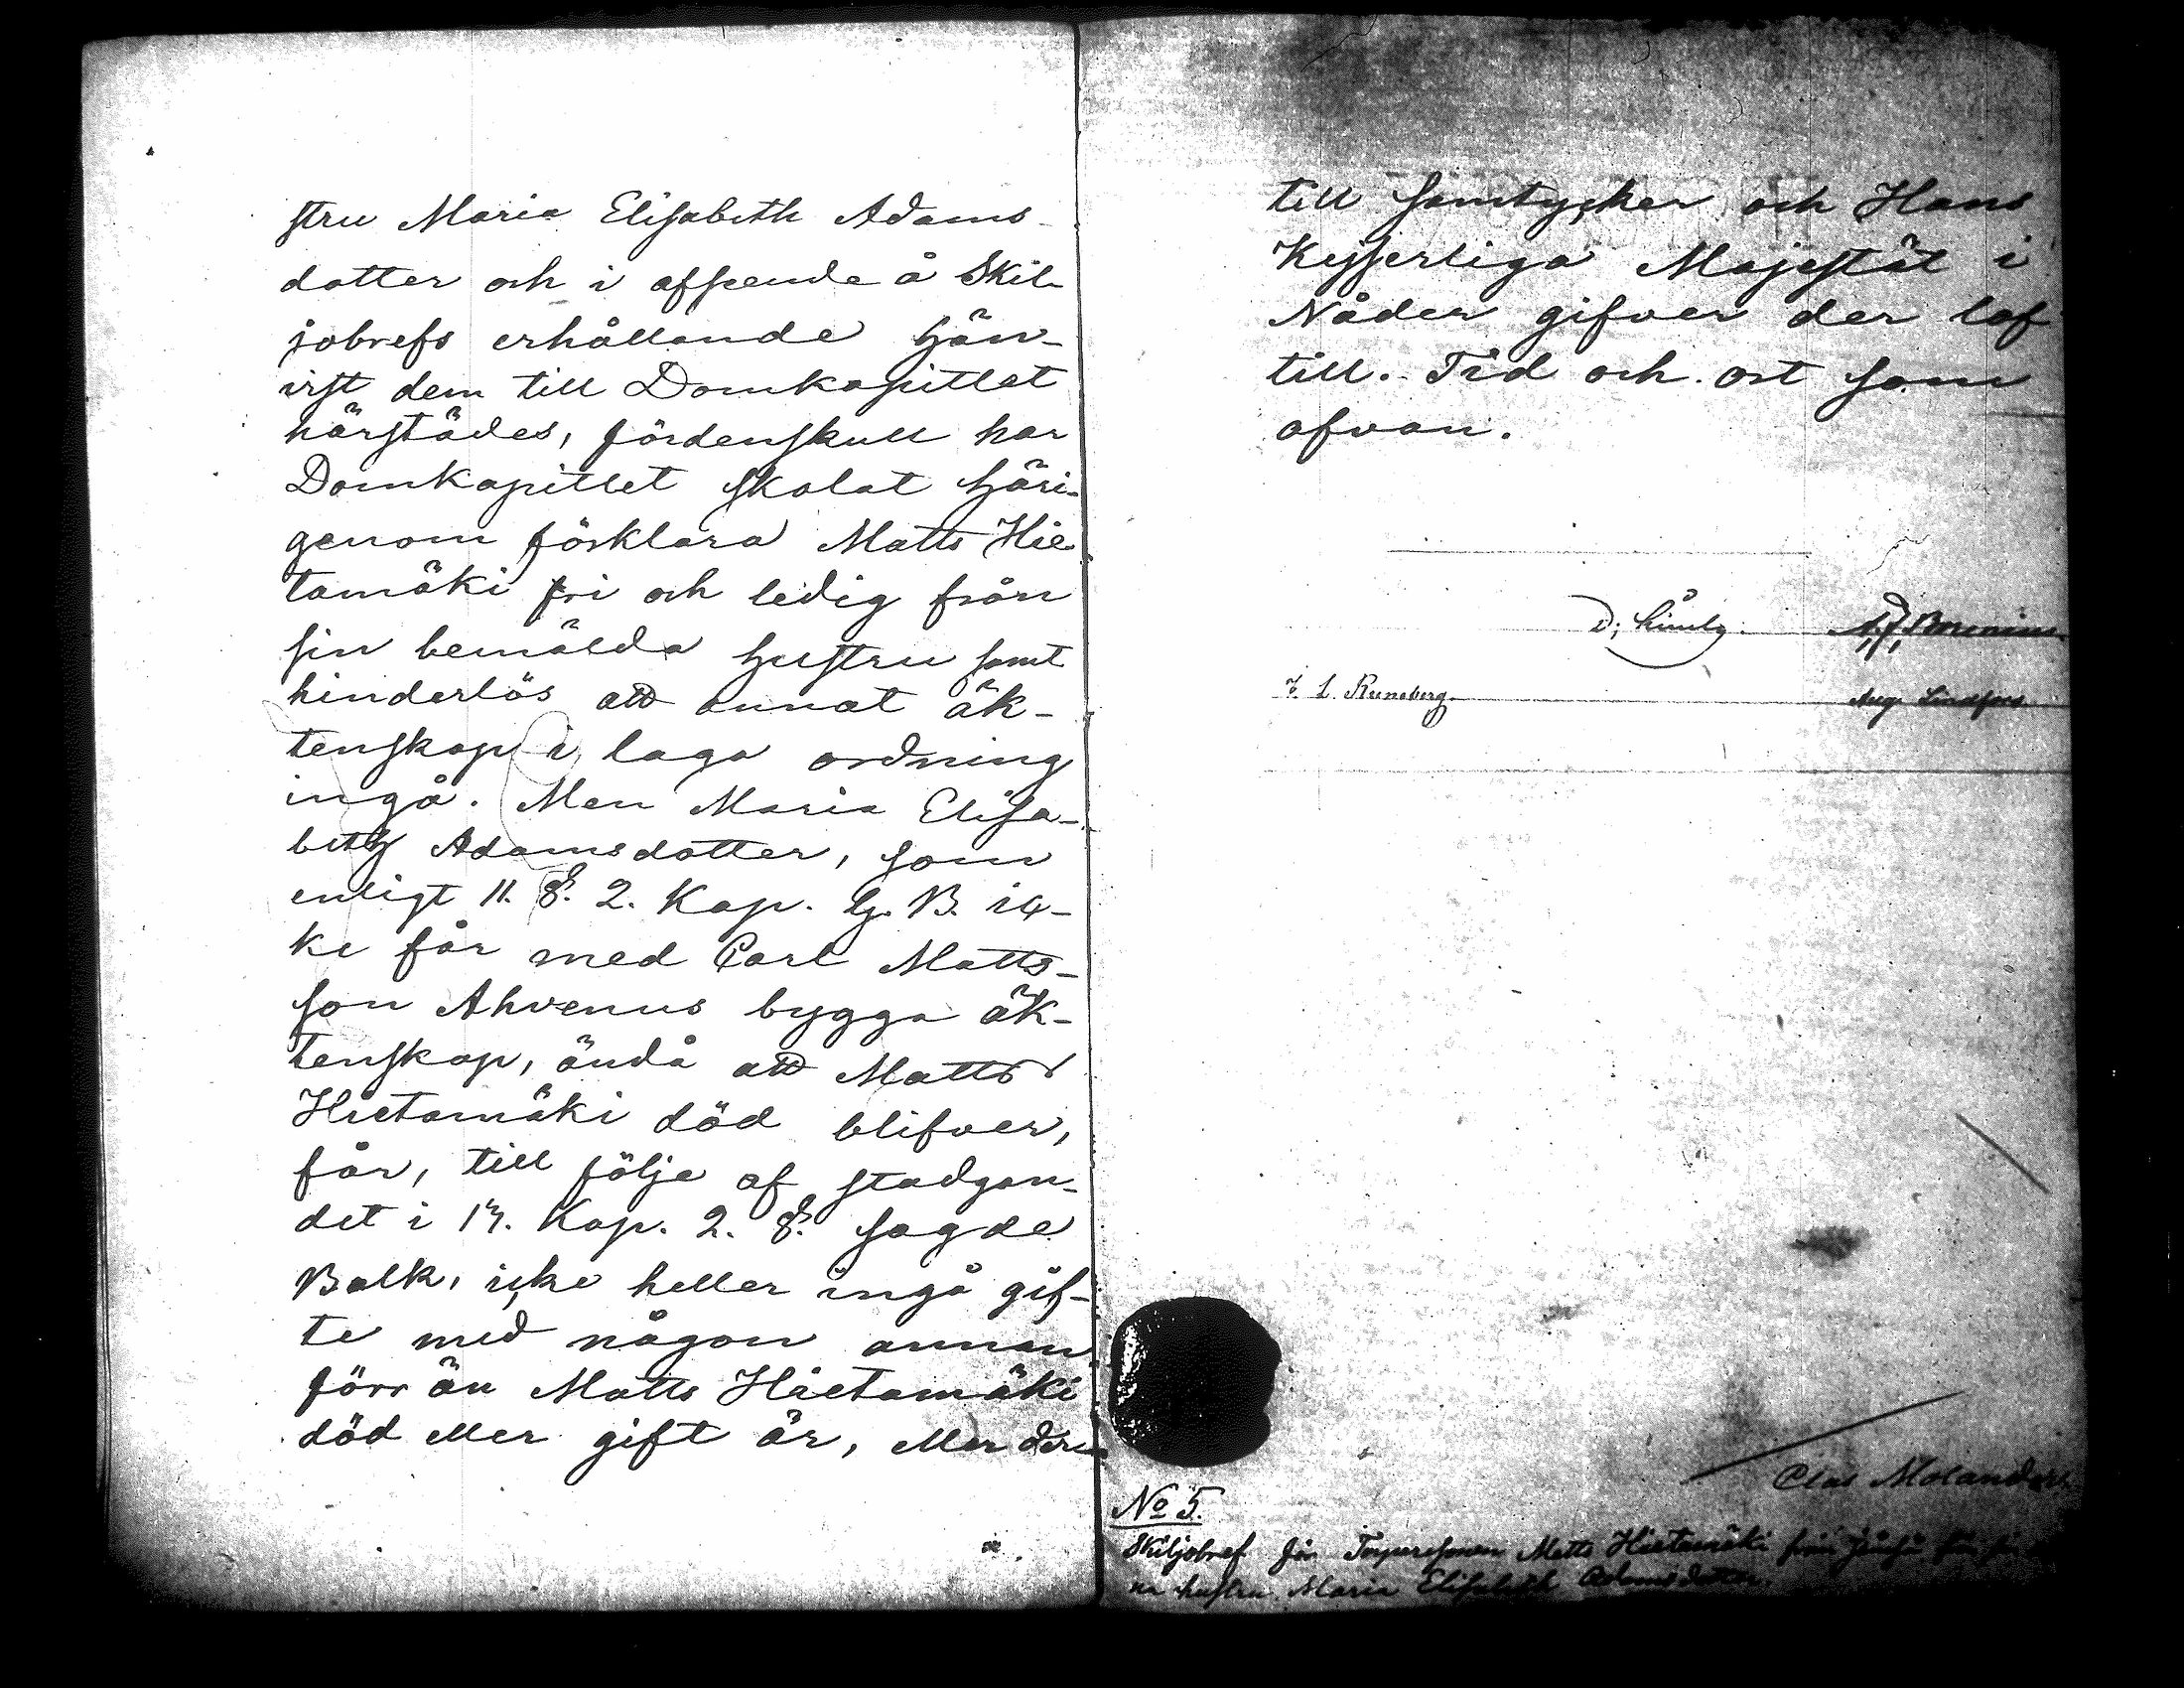 stru Maria Elisabeth Adams-
dotter och i afseende å Skil-
jobrefs erhållande hän-
vist dem till Domkapitlet
härstädes, fördenskull har
Domkapitlet skolat häri-
genom förklara Matts Hie-
tamäki fri och ledig från
sin bemälda hustru samt
hinderlös att annat äk-
tenskap i laga ordning
ingå. Men Maria Elisa-
beth Adamsdotter, som
enligt 11. §. 2. Kap. G. B. ic-
ke får med Carl Matts-
son Ahvenus bygga äk-
tenskap, ändå att Matts
Hietamäki död blifver,
får, till följe af stadgan-
det i 13. Kap. 2. §. sagde
Balk, icke heller ingå gif-
te med någon annan
förr än Matts Hietamäki
död eller gift är, eller der-
till samtycker och Hans
Kejserliga Majestät i
Nåder gifver der lof
till. Tid och ort som
ofvan.
A. F. Borenius
J. L. Runeberg
Aug. Lindfors
Clas Molander
No 5.
Skiljobref för Matts Hietamäki från
na hustru Maria Elisabeth Adamsdotter.